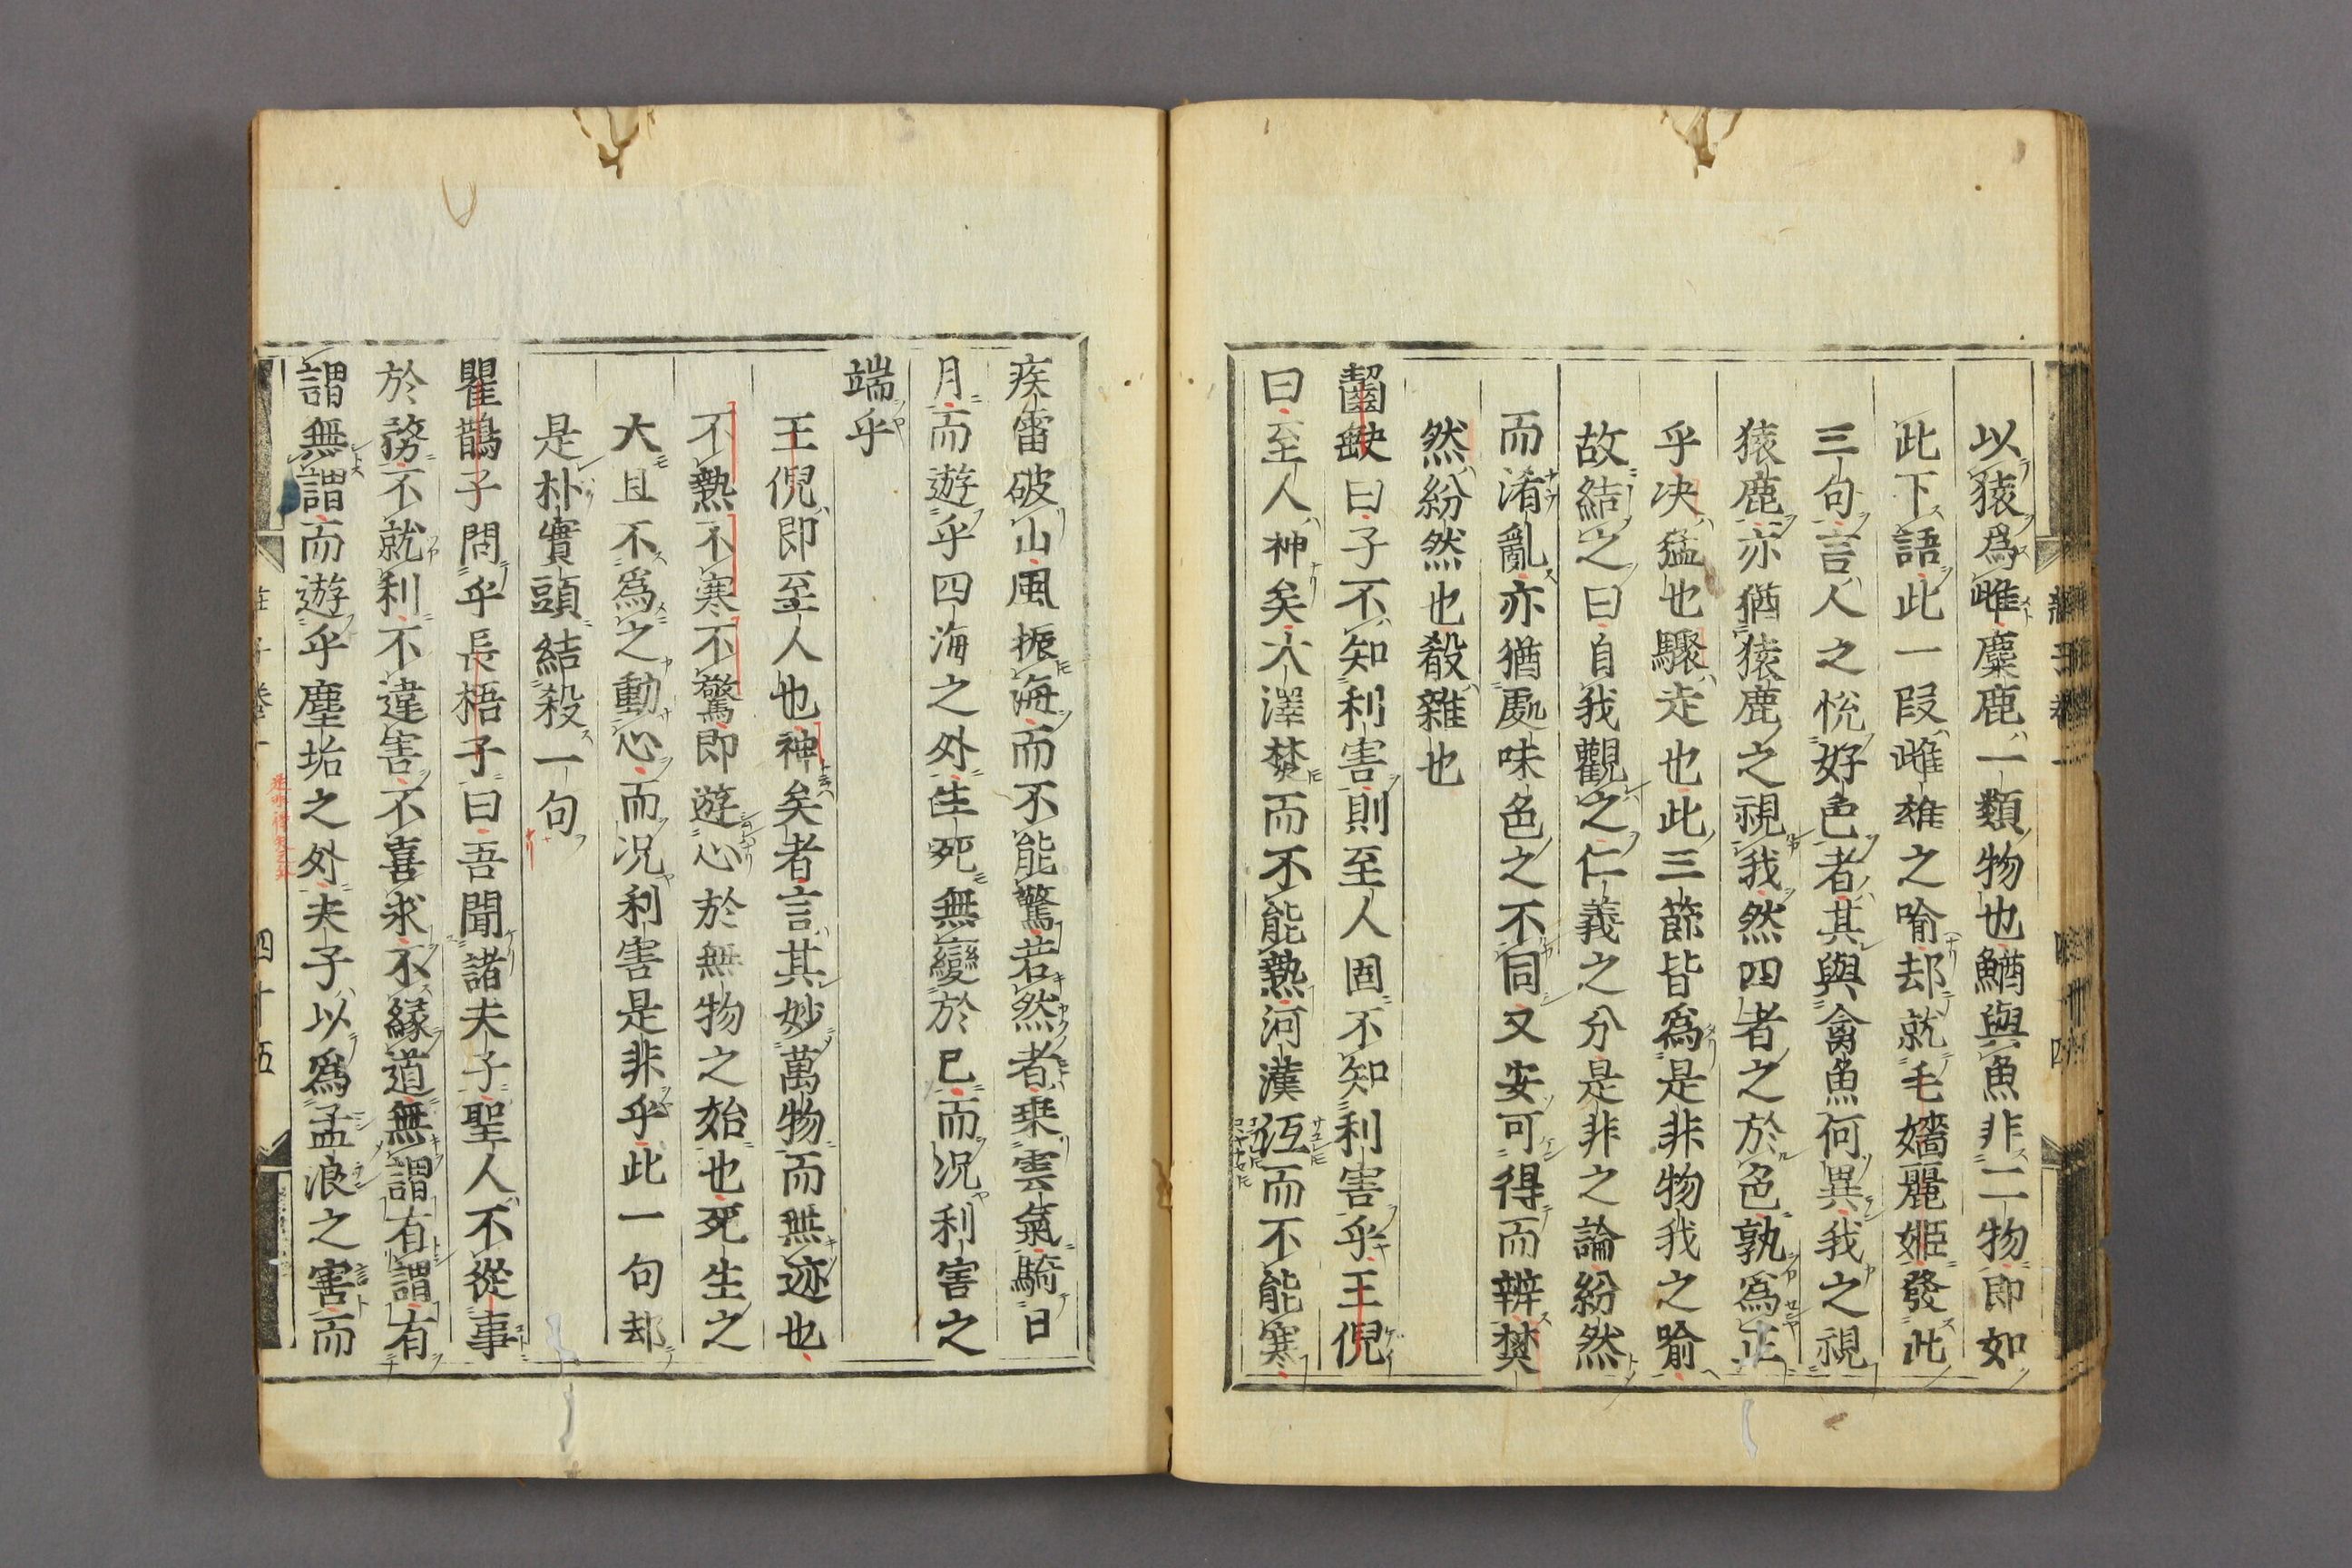 以猿爲雌麋鹿一類物也鰌與魚非二物即如
此下語此一段雌雄之喻却就毛嬙麗姬發此
三句言人之悦好色者其與禽魚何異我之視
猿鹿亦猶猿鹿之視我然四者之於色孰爲正
乎决猛也驟走也此三節皆爲是非物我之喻
故結之曰自我觀之仁義之分是非之論紛然
而淆亂亦猶處味色之不同又安可得而辨樊
然紛然也殽雜也
齧缺曰子不知利害則至人固不知利害乎王倪
曰至人神矣大澤焚而不能熱河漢冱而不能寒
疾雷破山風振海而不能驚若然者乗雲氣騎日
月而遊乎四海之外生死無變於己而况利害之
端乎
王倪即至人也神矣者言其妙萬物而無迹也
不熱不寒不驚即遊心於無物之始也死生之
大且不爲之動心而况利害是非乎此一句却
是朴實頭結殺一句
瞿鵲子問乎長梧子曰吾聞諸夫子聖人不從事
於務不就利不違害不喜求不緣道無謂有謂有
謂無謂而遊乎塵垢之外夫子以爲孟浪之言而
四十五